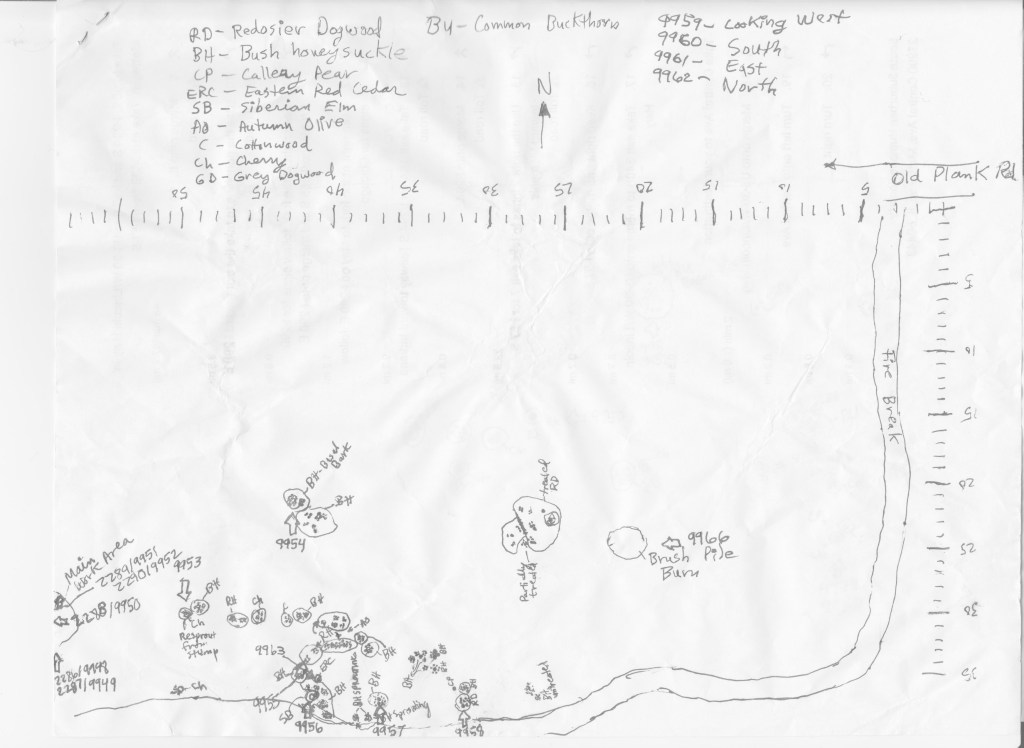 RD- Redosier Dogwood
BH- Bush honeysuckle
CP - Callery Pear
ERC - Eastern Red Cedar
SB - Siberian Elm
AO - Autumn Olive
C - Cottonwood
Ch - Cherry
GD- Grey Dogwood
By- Common Buckthorn
9959- Looking West
9960- South
9961- East
9962- North
N
Old Plank Rd
50
45
40
35
30
25
20
15
10
5
5
10
15
20
25
30
35
Fire Break
BH-
BH
9954
treated
RD
Partially
treated
9966
Brush Pile
Burn
Main
Work Area
2289/9951
2290/9952
9953
2288/9950
2286/9948
2287/9949
Ch
Resprout
from
stump
BH
BH
Ch
BH
AO
BH
9963
BH
BH
Ch
9955
SB
9956
BH
9957
Sprouting
BH
CP
RD
BH
9958
BH